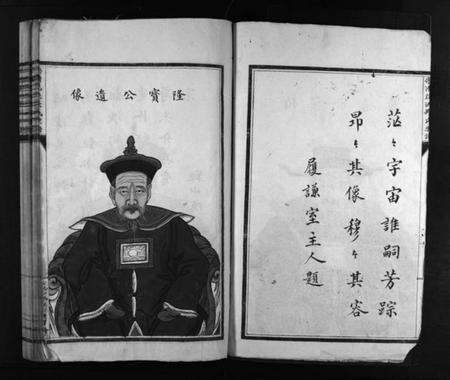 茫〻宇宙誰嗣芳踪
昂〻其像穆〻其容
履謙室主人題
隆寶公遺像